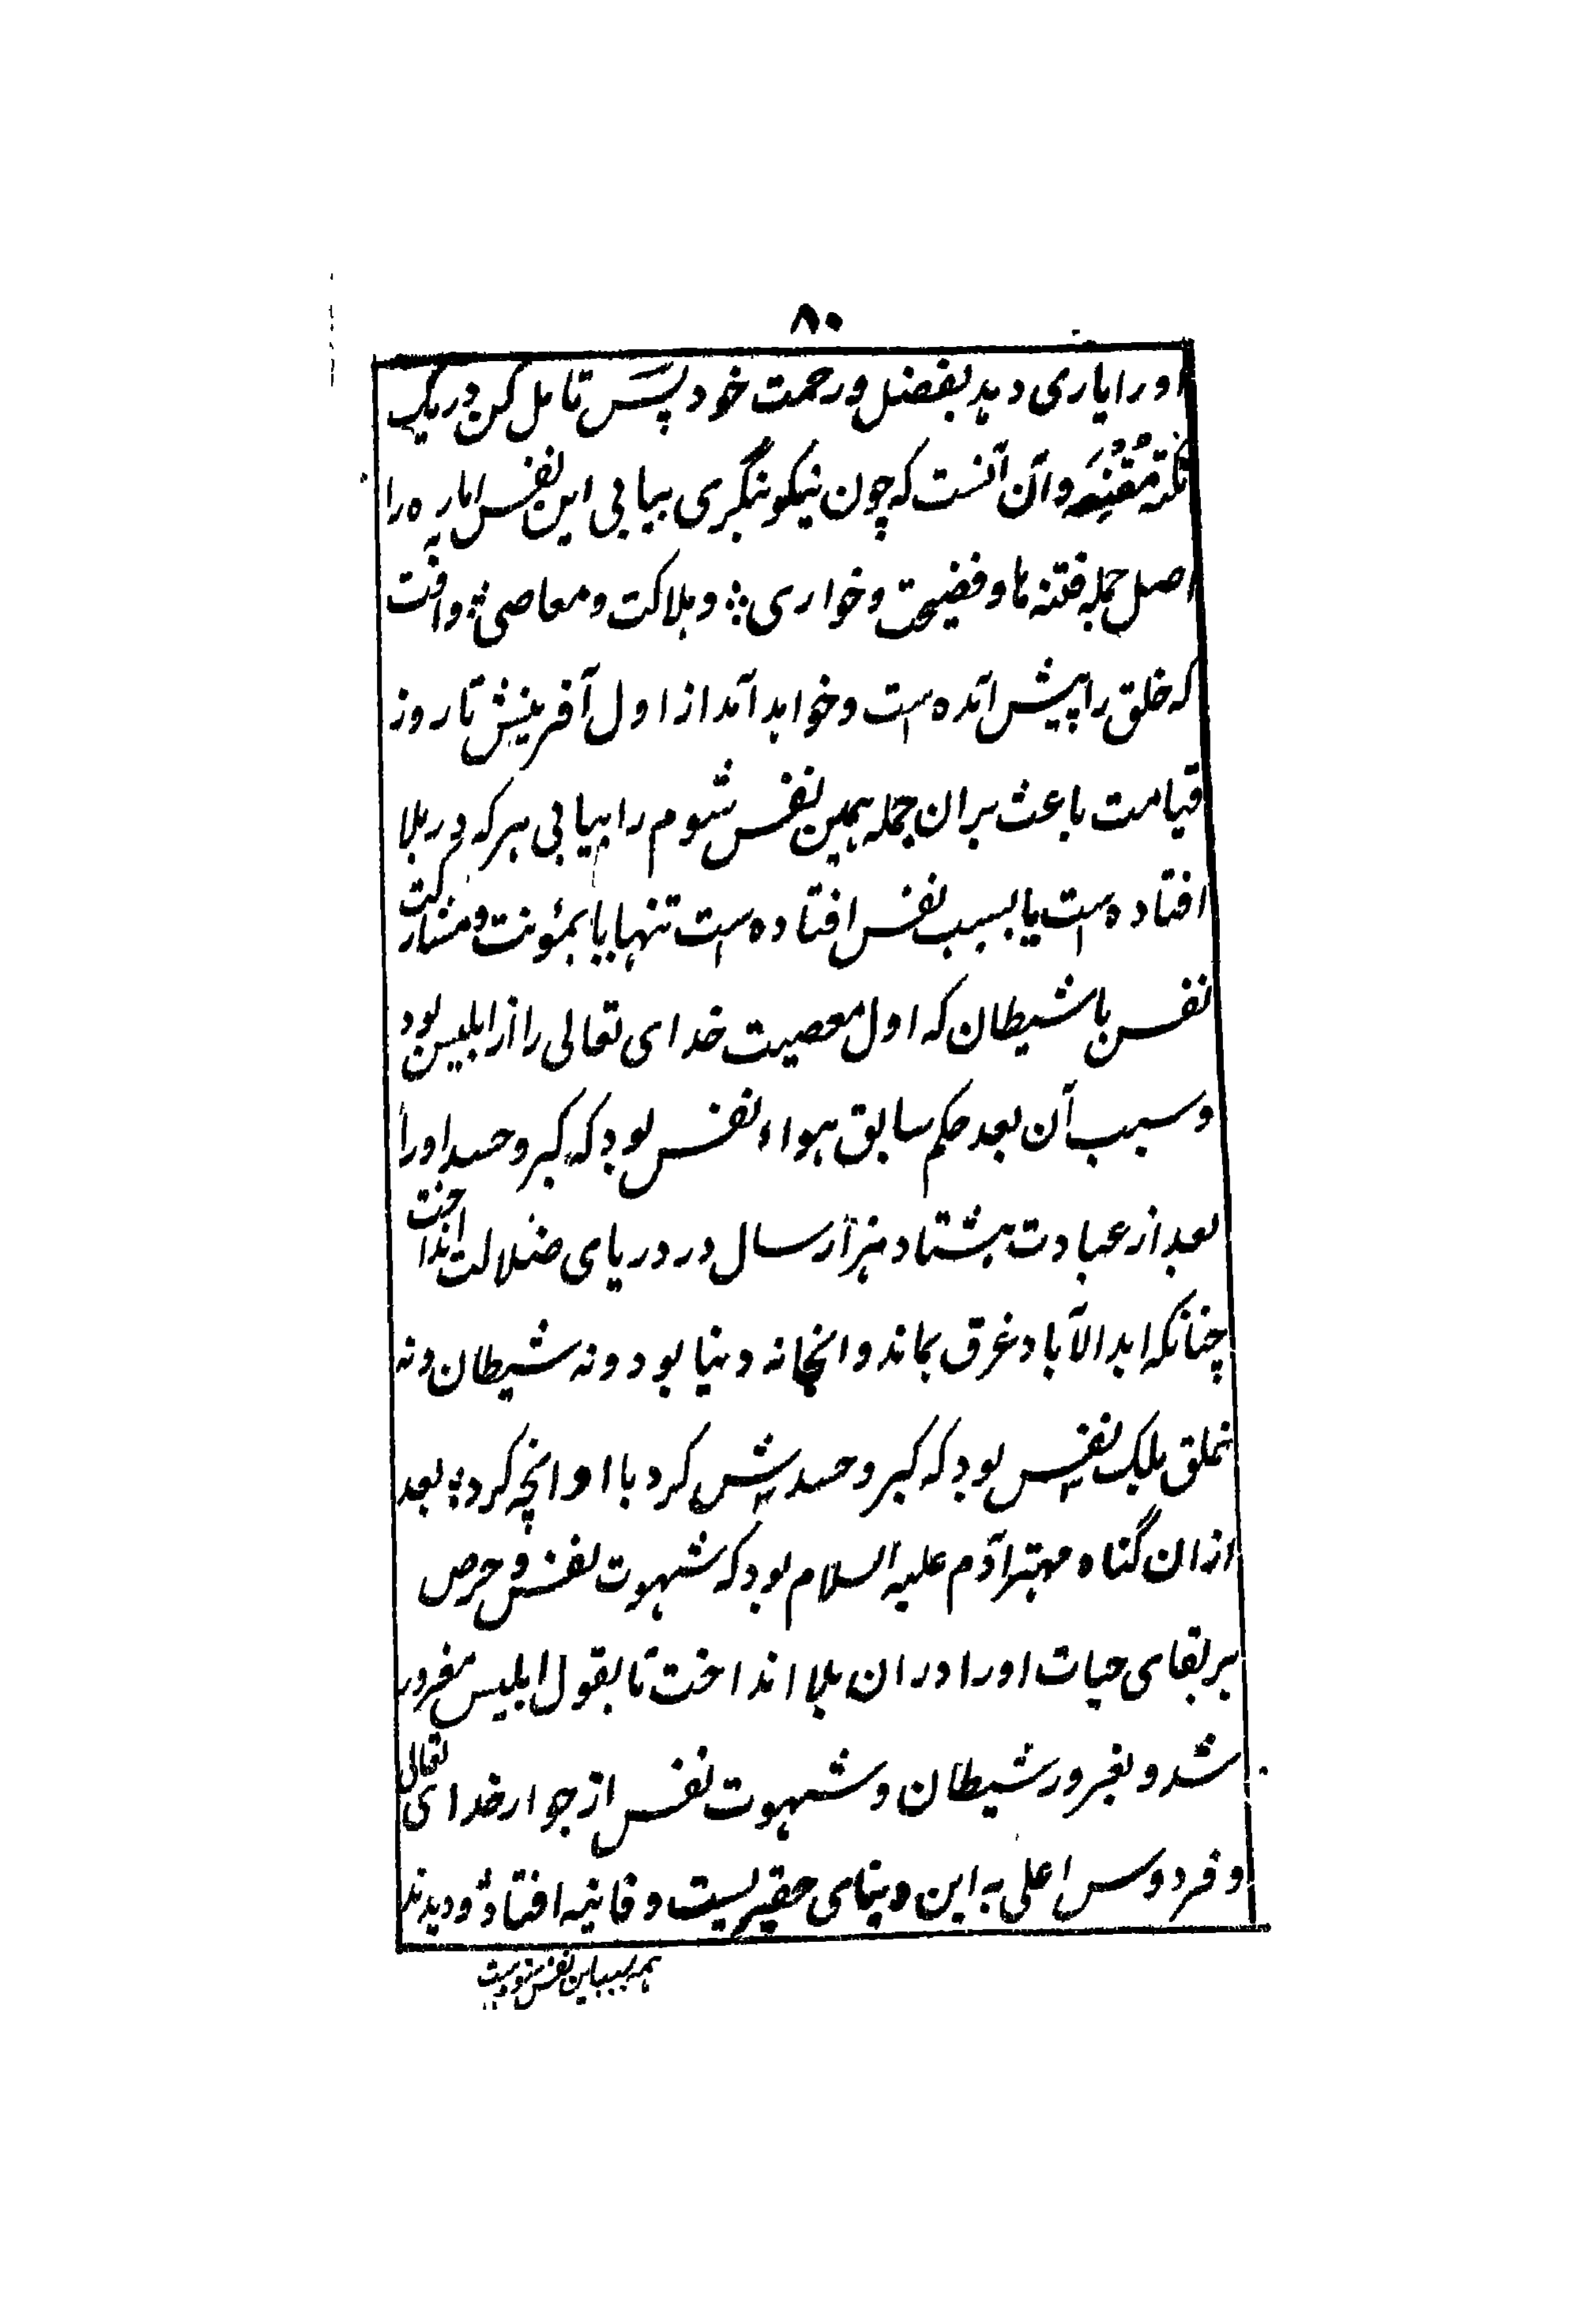 ۸۰
اورا یاری دهد بفضل ورحمت خود پَس تامل کن در یک
نکتهٔ مُقْنِعَه وآن آنست که چون نیکو بنگری بیابی این نفس اماره را
اصل جمله فتنه ها وفضیحت وخواری ؞ وهلاکت ومعاصی ؞ وافت
که خلق را پیش آمده است وخواهد آمد از اول آفرینش تا روز
قیامت باعث بران جمله همین نفس شوم را بیابی هر که در بلا
افتاده است یا بسبب نفس افتاده است تنها یا بمئونت ومشارکت
نفس با شیطان که اول معصیت خدای تعالی را از ابلیس بود
وسبب آن بعد حکم سابق هواء نفس بود که کبر وحسد اورا
بعد از عبادت هشتاد هزار سال در دریای ضلالت انداخت
چنانکه ابد الآباد غرق بماند وانجا نه دنیا بود ونه شیطان ونه
خلق بلک نفس بود که کبر وحسدش کرد با او انچه کرد ؞ بعد
ازان گناه مهتر آدم علیه السلام بود که شهوت نفس وحرص
بر بقای حیات اورا دران بلا انداخت تا بقول ابلیس مغرور
شد وبغرور شیطان وشهوت نفس از جوار خدای تعالی
وفردوس اعلی به این دنیای حقیر پست وفانیه افتاد ودیدند
همه بسبب این نفس شوم